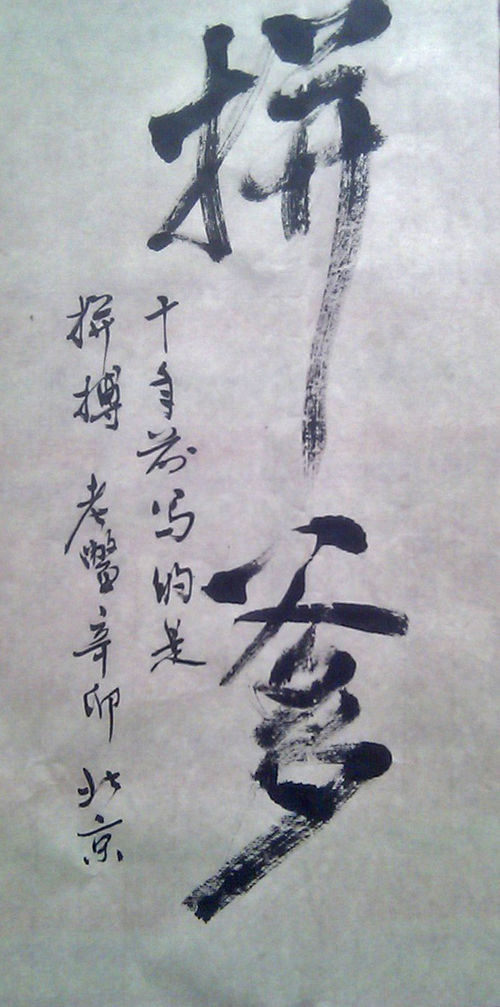 拼爹
十年前写的是
拼搏 老瞥 辛卯 北京